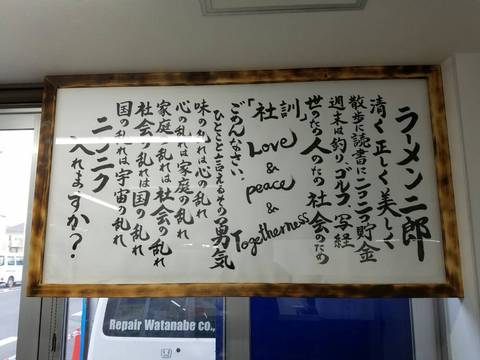 ラーメン二郎
清く正しく美しく
散歩に読書にニコニコ貯金
週末は釣り、ゴルフ、写経
世のため人のため社会のため
「社訓」
Love & peace & Togetherness
ごめんなさい、
ひとこと言えるその勇気
味の乱れは心の乱れ
心の乱れは家庭の乱れ
家庭の乱れは社会の乱れ
社会の乱れは国の乱れ
国の乱れは宇宙の乱れ
ニンニク
入れますか?
Repair Watanabe co.,